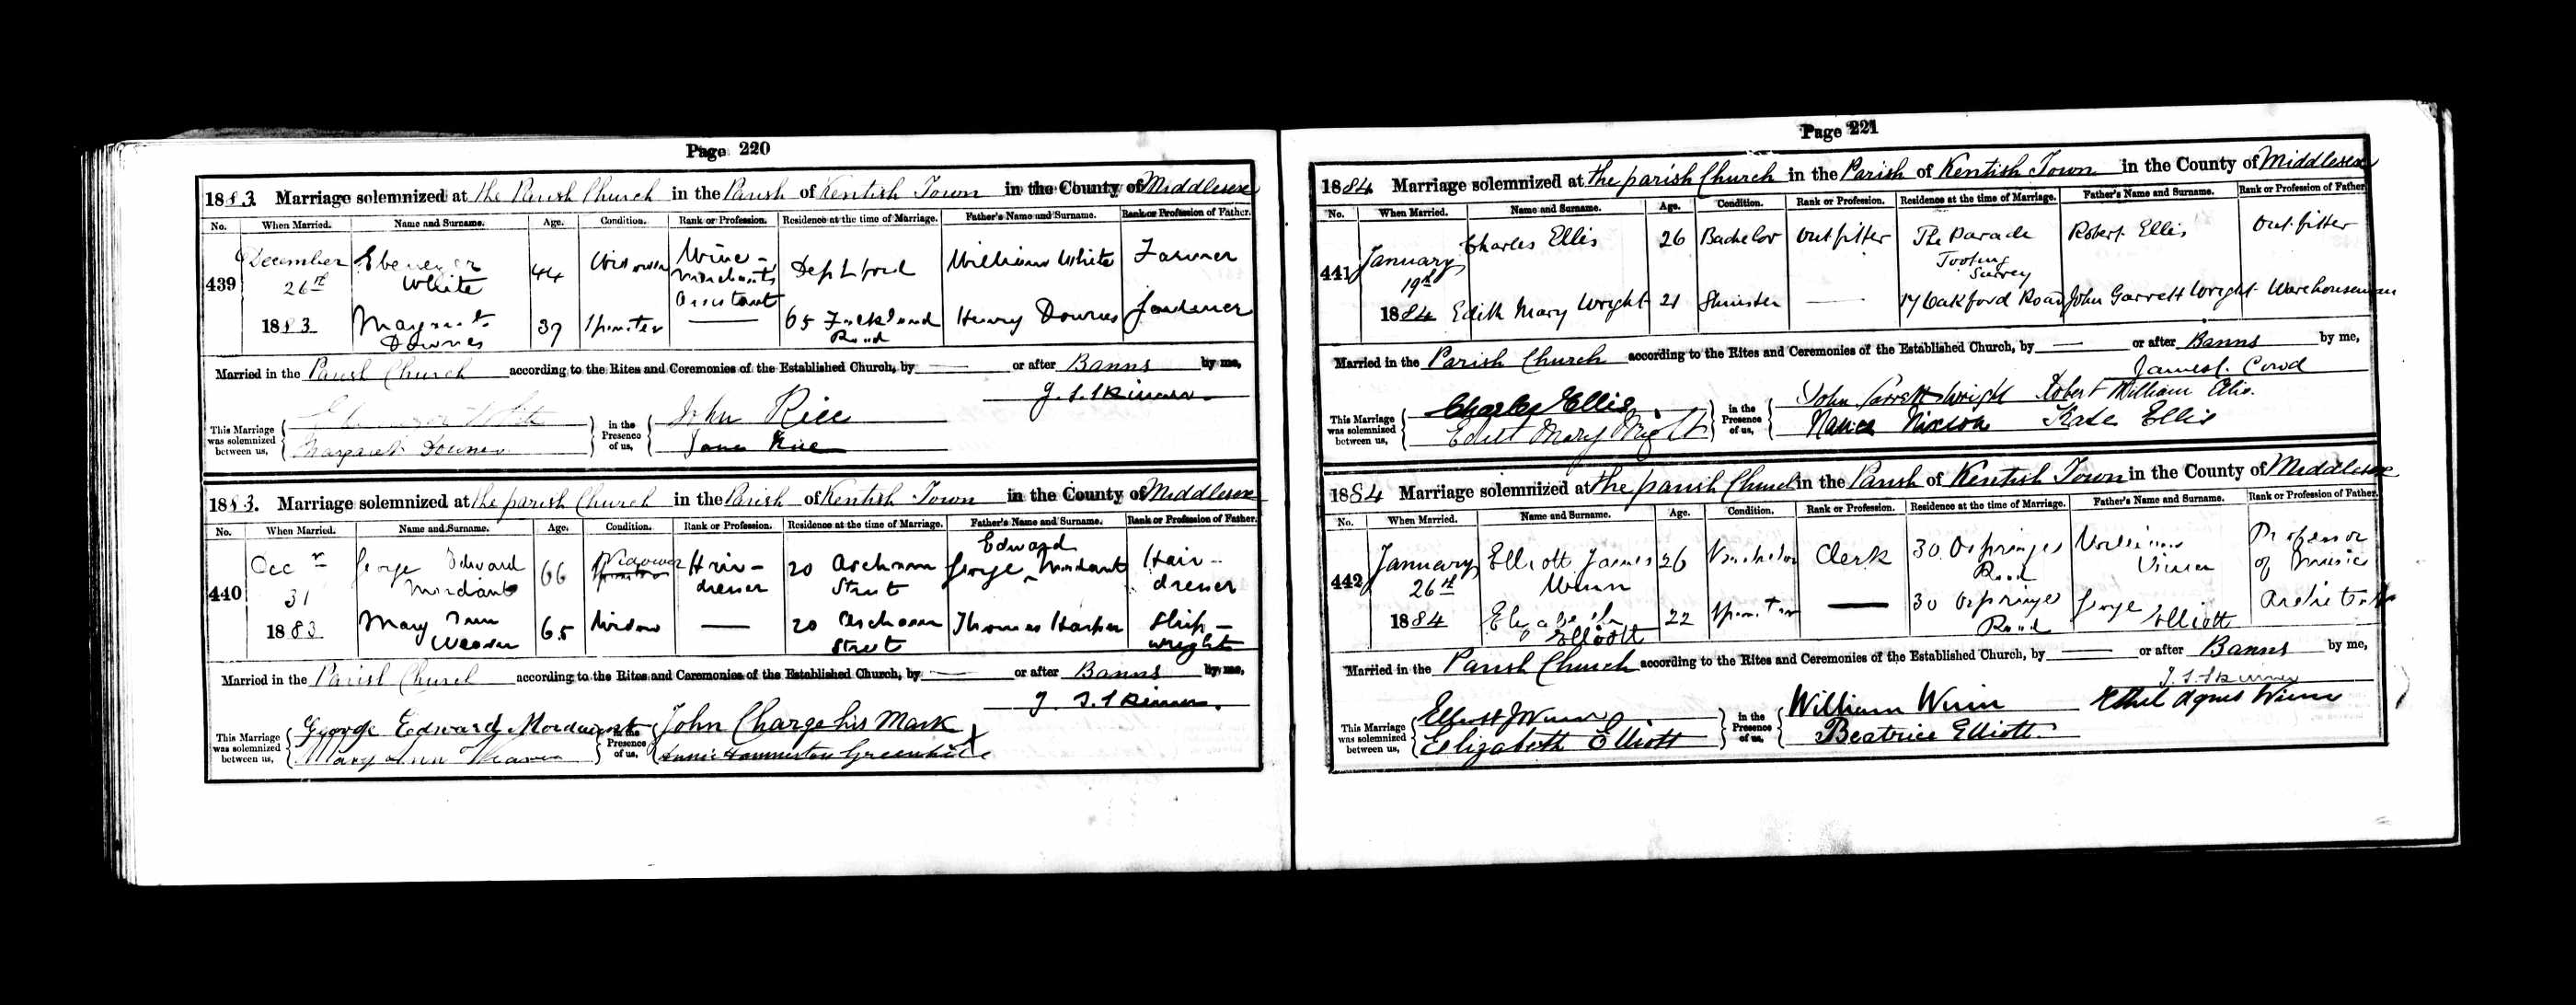 Page 220
1883. Marriage solemnized at the Parish Church in the Parish of Kentish Town in the County of Middlesex
No. When Married. Name and Surname. Age. Condition. Rank or Profession. Residence at the time of Marriage. Father's Name and Surname. Rank or Profession of Father.
439 December 26th 1883 Ebenezer White 44 Widower Wine-merchants assistant Deptford William White Farmer
Margaret Downes 37 Spinster — 65 Falkland Road Henry Downes Gardener
Married in the Parish Church according to the Rites and Ceremonies of the Established Church, by — or after Banns by me,
J. S. Skinner
This Marriage was solemnized between us, Ebenezer White in the Presence of us, John Rice
Margaret Downes Jane Rice
1883. Marriage solemnized at the parish Church in the Parish of Kentish Town in the County of Middlesex
No. When Married. Name and Surname. Age. Condition. Rank or Profession. Residence at the time of Marriage. Father's Name and Surname. Rank or Profession of Father.
440 Decr 31 1883 George Edward Mordaunt 66 Widower Hair-dresser 20 Street George Edward Mordaunt Hair-dresser
Mary Ann Weaver 65 Widow — 20 Street Thomas Harper Ship-wright
Married in the Parish Church according to the Rites and Ceremonies of the Established Church, by — or after Banns by me,
J. S. Skinner.
This Marriage was solemnized between us, George Edward Mordaunt in the Presence of us, John Charge his Mark X
Mary Ann Weaver Annie Greenhill
Page 221
1884 Marriage solemnized at the parish Church in the Parish of Kentish Town in the County of Middlesex
No. When Married. Name and Surname. Age. Condition. Rank or Profession. Residence at the time of Marriage. Father's Name and Surname. Rank or Profession of Father.
441 January 19th 1884 Charles Ellis 26 Bachelor Outfitter The Parade Tooting Surrey Robert Ellis Outfitter
Edith Mary Wright 21 Spinster — 17 Oakford Road John Garrett Wright Warehouseman
Married in the Parish Church according to the Rites and Ceremonies of the Established Church, by — or after Banns by me,
James C. Cowd
This Marriage was solemnized between us, Charles Ellis in the Presence of us, John Garrett Wright Robert William Ellis.
Edith Mary Wright Nixson Kate Ellis
1884 Marriage solemnized at the parish Church in the Parish of Kentish Town in the County of Middlesex
No. When Married. Name and Surname. Age. Condition. Rank or Profession. Residence at the time of Marriage. Father's Name and Surname. Rank or Profession of Father.
442 January 26th 1884 Elliott James Winn 26 Bachelor Clerk 30 Ospringe Road William Winn Professor of Music
Elizabeth Elliott 22 Spinster — 30 Ospringe Road George Elliott Architect
Married in the Parish Church according to the Rites and Ceremonies of the Established Church, by — or after Banns by me,
J. S. Skinner
This Marriage was solemnized between us, Elliott J Winn in the Presence of us, William Winn Ethel Agnes Winn
Elizabeth Elliott Beatrice Elliott